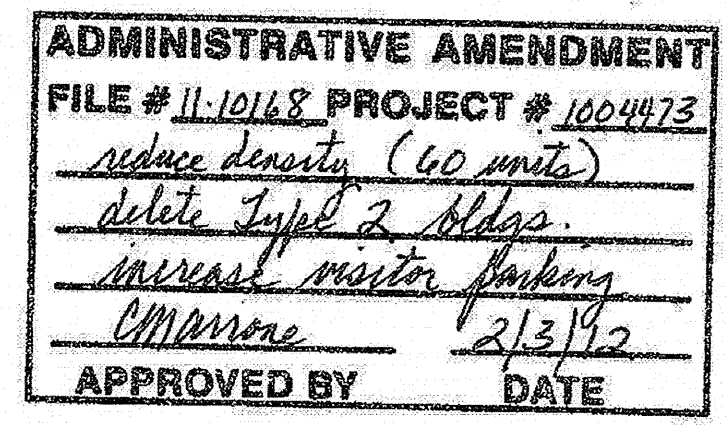 ADMINISTRATIVE AMENDMENT
FILE # 11-10168 PROJECT # 1004473
reduce density (60 units)
delete Type 2 bldgs.
increase visitor parking
CMarrone 2/3/12
APPROVED BY DATE